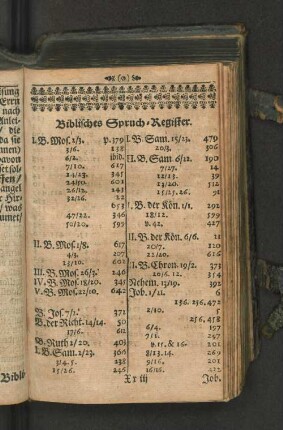 Biblisches Spruch-Register.
I. B. Mos. 2/3. p. 379
3/6. 138
6/2. ibid.
7/10. 627
24/23. 345
24/50. 601
26/13. 243
32/26. 22
653
47/22. 346
50/20. 599
II. B. Mos. 1/8. 617
4/3. 207
15/10. 602
III. B. Mos. 26/3. 246
IV. B. Mos. 18/20. 345
V. B. Mos. 22/10. 642
B. Jos. 7/1. 372
B. der Richt. 14/14. 50
17/6. 612
B. Ruth 2/20. 403
I. B. Sam. 2/23. 366
3/4. 5. 238
15/26. 236
I. B. Sam. 15/23. 479
20/3. 306
II. B. Sam. 6/12. 190
7/27. 14
12/13. 39
23/10. 212
25/25. 26. 91
I. B. der Kön. 1/1. 292
18/12. 579
v. 42. 427
II. B. der Kön. 6/6. 12
20/7. 110
22/20. 626
II. B. Chron. 19/2. 371
20/6. 12. 354
Nehem. 13/19. 392
Job. 1/21. 6
236. 236. 472
2/10. 5
216. 458
6/4. 157
7/1. 297
v. 15. & 16. 201
8/13. 14. 269
9/16. 231
16/22. 191
Xx iij
Job.